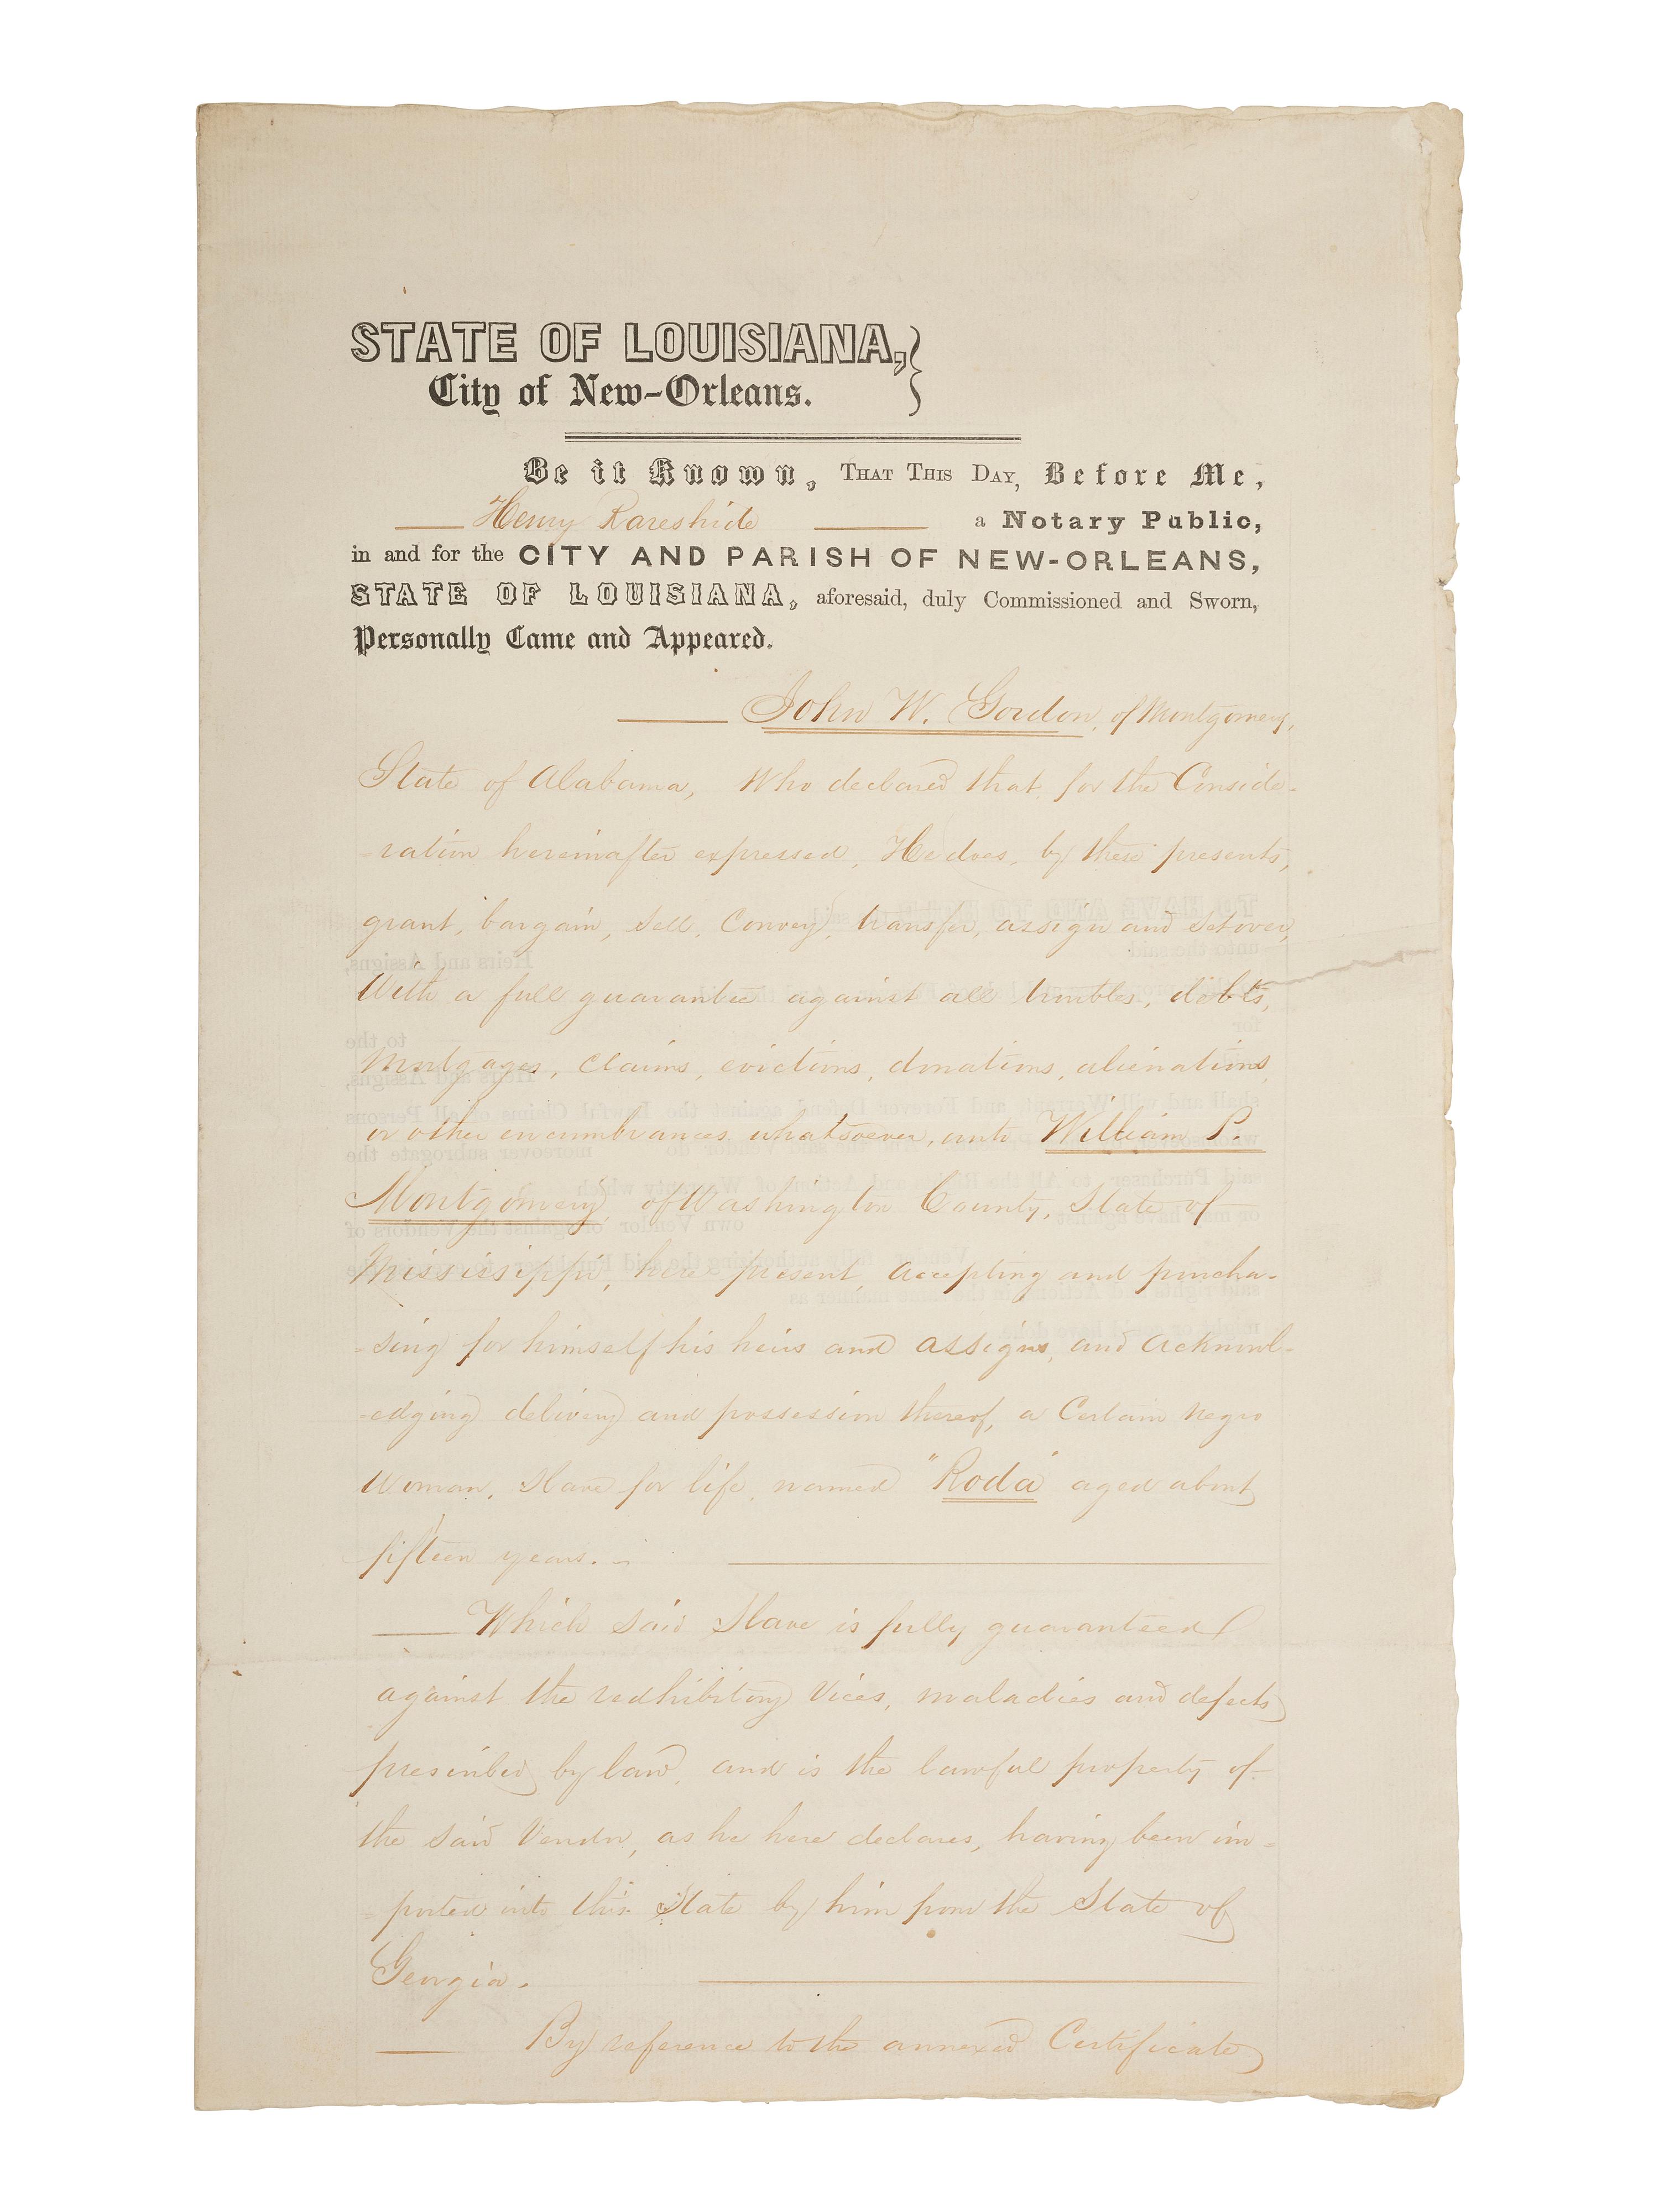 STATE OF LOUISIANA,
City of New-Orleans.
Be it Known, THAT THIS DAY, Before Me,
Henry Rareshide a Notary Public,
in and for the CITY AND PARISH OF NEW-ORLEANS,
STATE OF LOUISIANA, aforesaid, duly Commissioned and Sworn,
Personally Came and Appeared.
John W. Gordon, of Montgomery,
State of Alabama, Who declared that for the Conside-
-ration hereinafter expressed, He does, by these presents,
grant, bargain, Sell, Convey, transfer, assign and Set over,
With a full guarantee against all troubles, debts,
Mortgages, Claims, evictions, donations, alienations,
or other encumbrances whatsoever, unto William P.
Montgomery of Washington County, State of
Mississippi, here present, Accepting and purcha-
-sing for himself his heirs and assigns, and acknowl-
-edging delivery and possession thereof, a Certain Negro
Woman, Slave for life, named "Roda" aged about
fifteen years.
Which Said Slave is fully guaranteed
against the redhibitory Vices, maladies and defects
prescribed by law, and is the lawful property of
the Said Vendor, as he here declares, having been im-
-ported into this State by him from the State of
Georgia.
By reference to the annexed Certificate